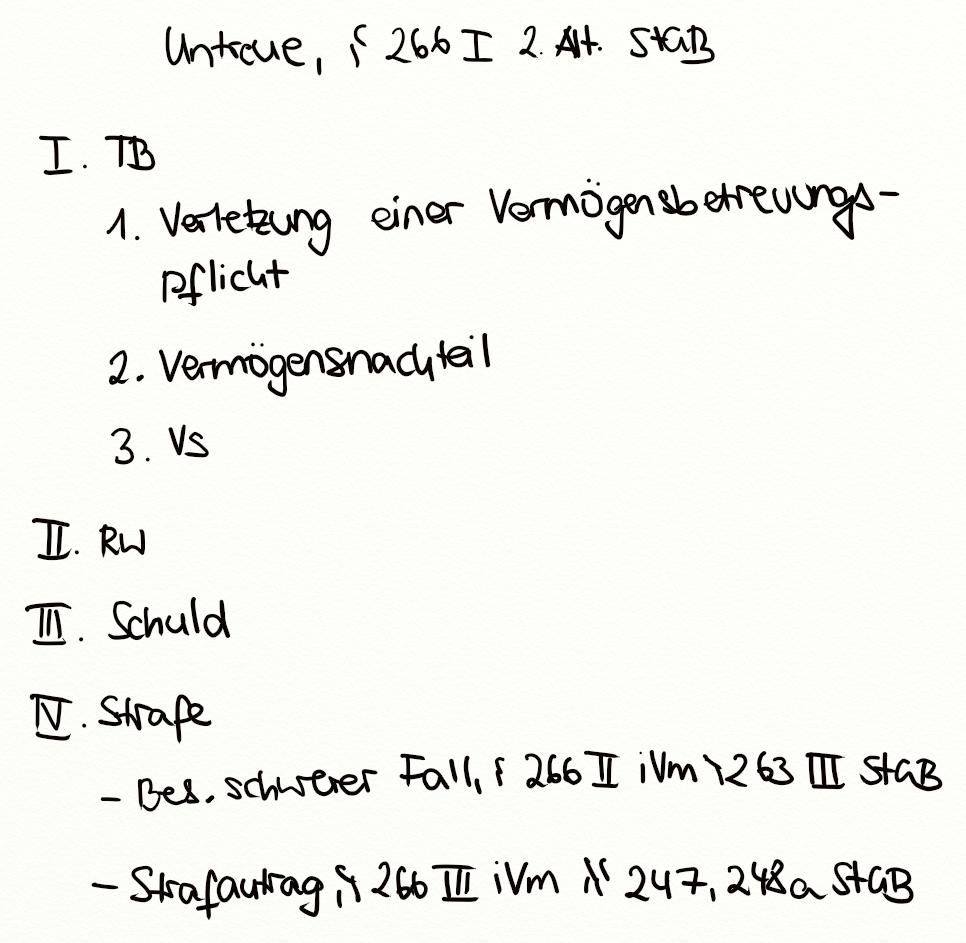 Untreue, § 266 I 2. Alt. StGB
I. TB
1. Verletzung einer Vermögensbetreuungs-
pflicht
2. Vermögensnachteil
3. VS
II. RW
III. Schuld
IV. Strafe
- Bes. schwerer Fall, § 266 II iVm § 263 III StGB
- Strafantrag, § 266 III iVm §§ 247, 248a StGB